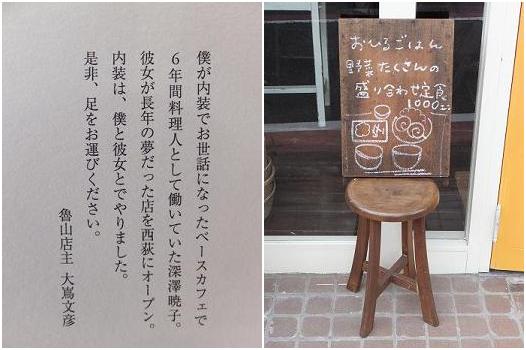 僕が内装でお世話になったベースカフェで
6年間料理人として働いていた深澤暁子。
彼女が長年の夢だった店を西荻にオープン。
内装は、僕と彼女とでやりました。
是非、足をお運びください。
魯山店主 大嶌文彦
おひるごはん
野菜たくさんの
盛り合わせ定食
1000